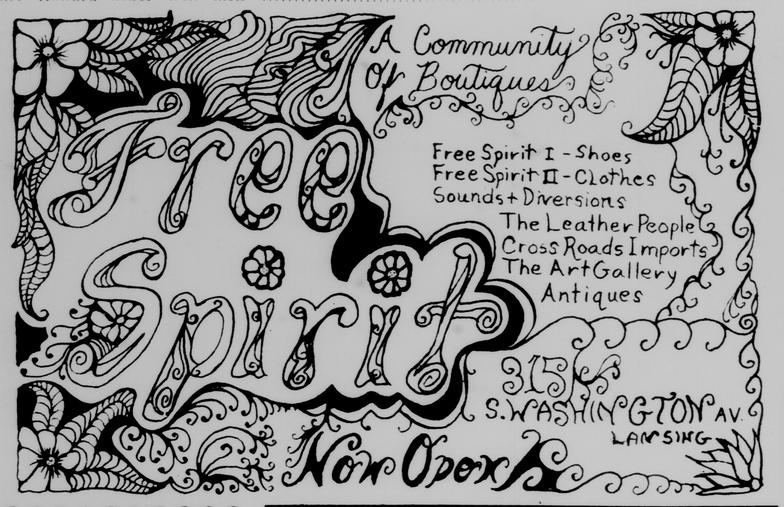 A Community
Of Boutiques
Free
Spirit
Free Spirit I - Shoes
Free Spirit II - Clothes
Sounds + Diversions
The Leather People
Cross Roads Imports
The Art Gallery
Antiques
315
S. WASHINGTON AV.
LANSING
Now Open